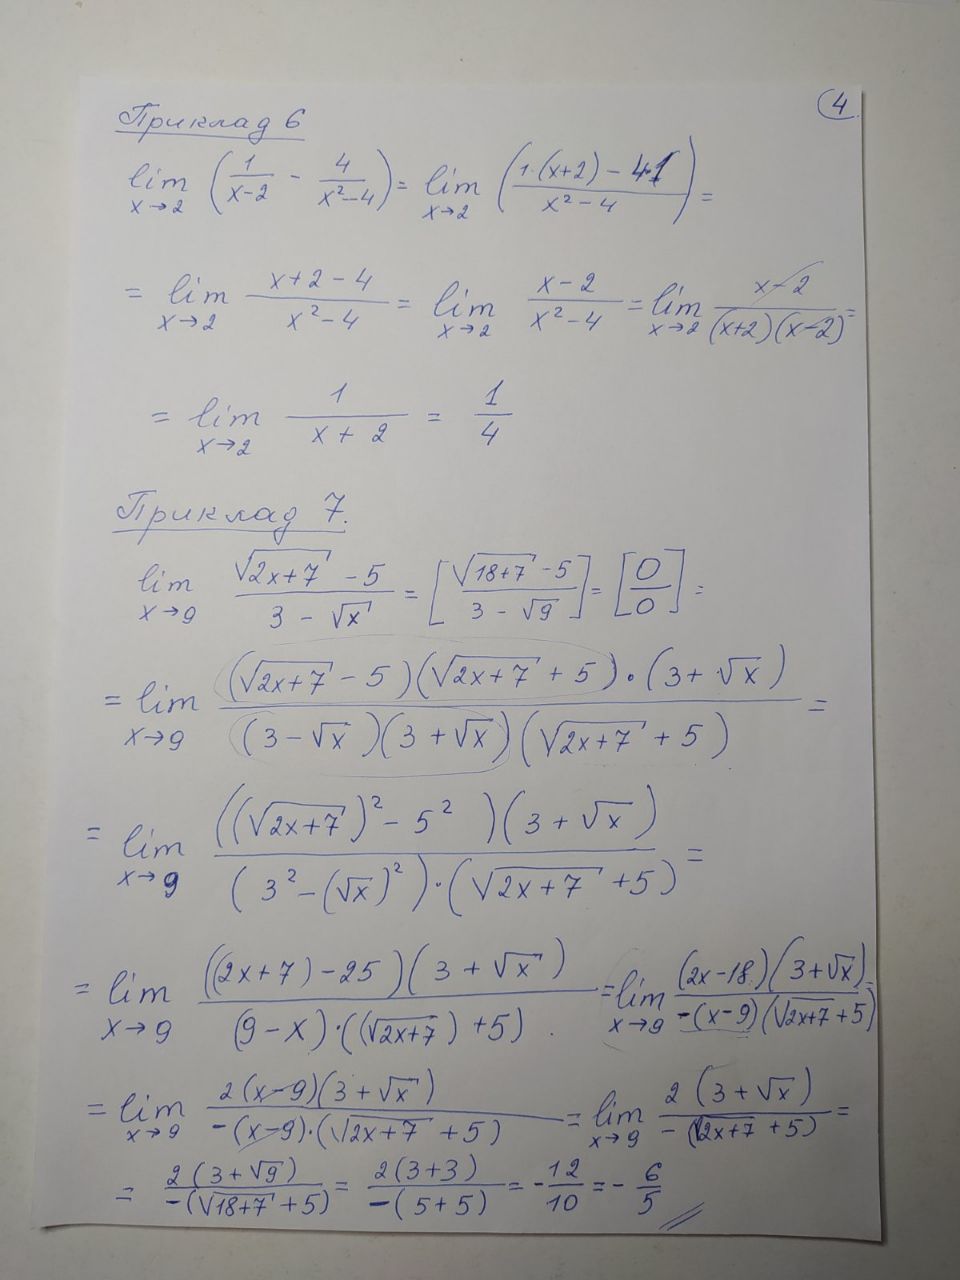 4
Приклад 6
lim x→2 (1/(x-2) - 4/(x²-4)) = lim x→2 ((1·(x+2) - 4·1)/(x²-4)) =
= lim x→2 (x+2-4)/(x²-4) = lim x→2 (x-2)/(x²-4) = lim x→2 (x-2)/((x+2)(x-2)) =
= lim x→2 1/(x+2) = 1/4
Приклад 7.
lim x→9 (√(2x+7) - 5)/(3 - √x) = [(√(18+7) - 5)/(3 - √9)] = [0/0] =
= lim x→9 ((√(2x+7) - 5)(√(2x+7) + 5)·(3+√x))/((3-√x)(3+√x)(√(2x+7) + 5)) =
= lim x→9 (((√(2x+7))² - 5²)(3+√x))/((3²-(√x)²)·(√(2x+7) + 5)) =
= lim x→9 (((2x+7)-25)(3+√x))/((9-x)·((√(2x+7)) + 5)) = lim x→9 ((2x-18)(3+√x))/(-(x-9)(√(2x+7) + 5)) =
= lim x→9 (2(x-9)(3+√x))/(-(x-9)·(√(2x+7) + 5)) = lim x→9 (2(3+√x))/(-(√(2x+7) + 5)) =
= (2(3+√9))/(-(√(18+7) + 5)) = (2(3+3))/(-(5+5)) = -12/10 = -6/5